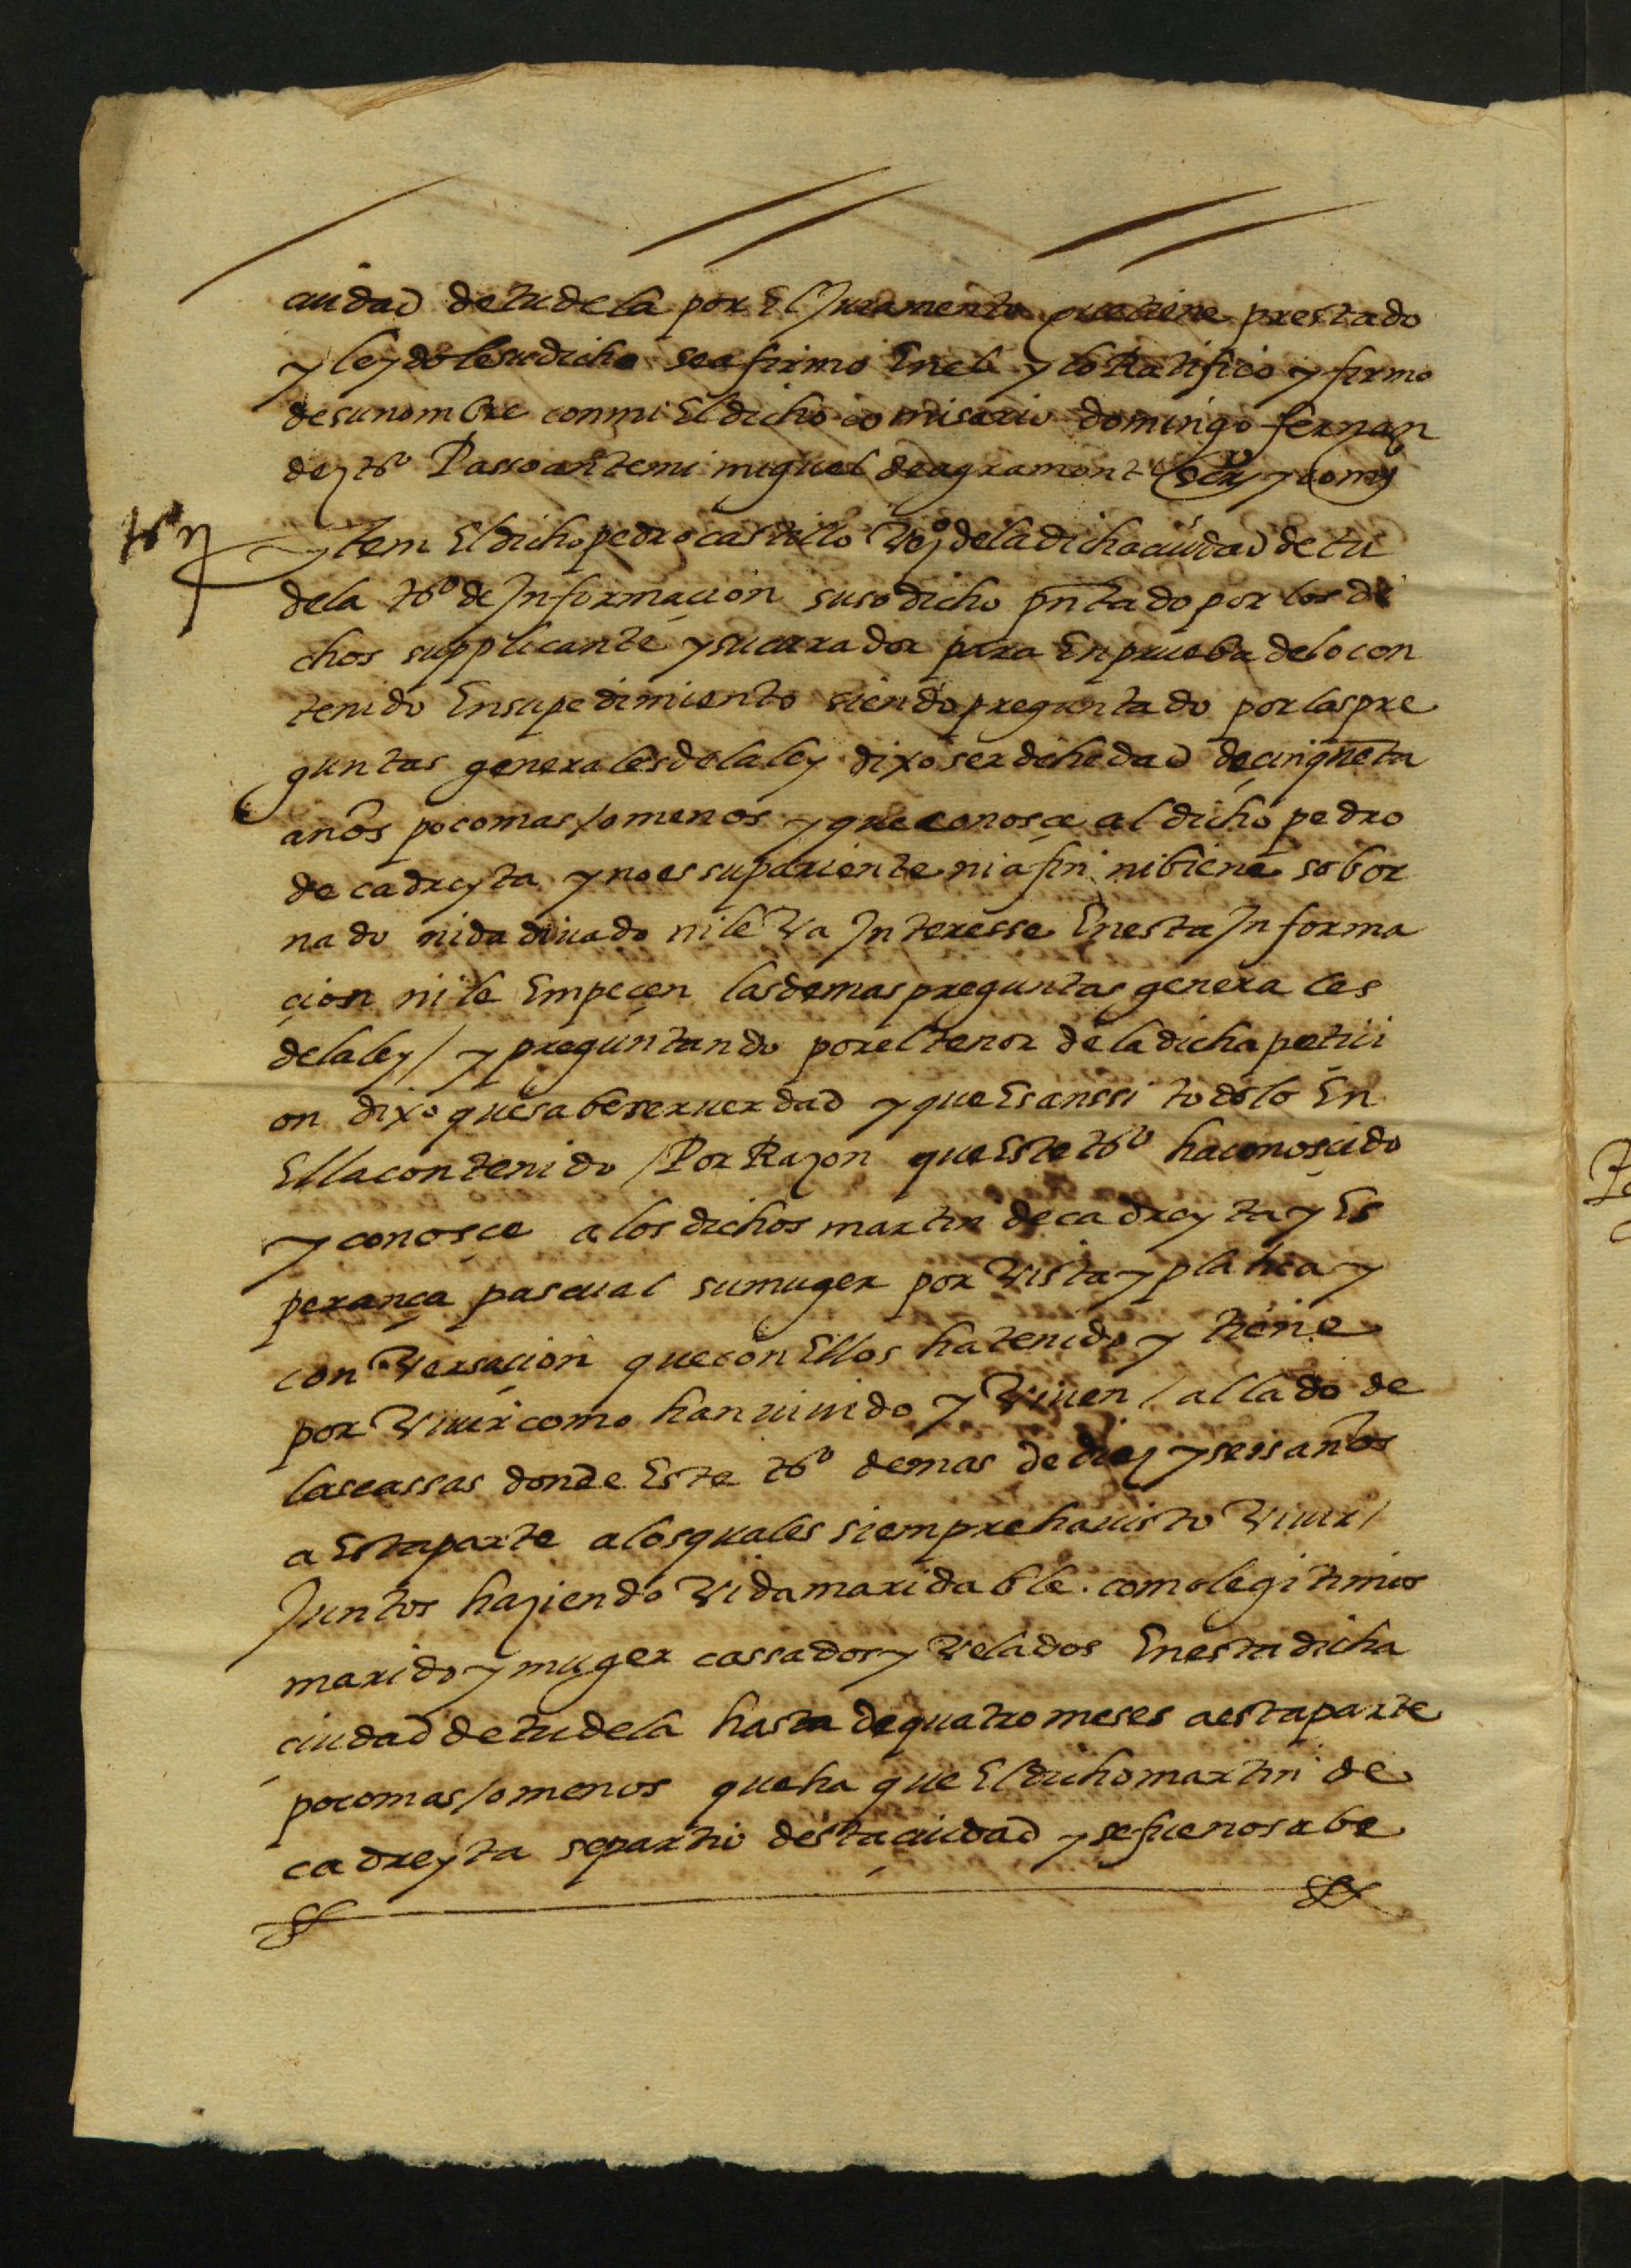 ciudad de tudela por El Juramento que tiene prestado
y leydole su dicho se afirmo En el y lo Ratifico y firmo
de su nombre con mi El dicho comisario domingo fernan
dez tº Passo ante mi miguel de agramont scrº y comº
tº ij
ytem El dicho pedro castillo vezº de la dicha ciudad de tu
dela tº de Informacion susodicho pntado por los di
chos supplicante y su curador para En prueba de lo con
tenido En su pedimiento siendo preguntado por las pre
guntas generales de la ley dixo ser de hedad de cinquēta
años poco mas / o menos y que conosçe al dicho pedro
de cadreyta y no es su pariente ni afin ni biene sobor
nado ni dadiuado ni le va Interesse En esta Informa
çion ni le Empeçen las demas preguntas generales
de la ley / y preguntando por el tenor de la dicha petiçi
on dixo que sabe ser uerdad y que Es anssi todo lo En
Ella contenido / Por Razon que Este tº ha conosçido
y conosçe a los dichos martin de cadreyta y Es
perança pascual su muger por vista y platica y
conversaçion que con Ellos ha tenido y tiene
por viuir como han uiuido y viuen / al lado de
las cassas donde Este tº de mas de diez y seis años
a Esta parte a los quales siempre ha uisto viuir /
Juntos haziendo vida maridable. como legitimos
marido y muger cassados y velados En esta dicha
çiudad de tudela hasta de quatro meses a esta parte
poco mas / o menos que ha que El dicho martin de
cadreyta se partio desta çiudad y se fue no sabe